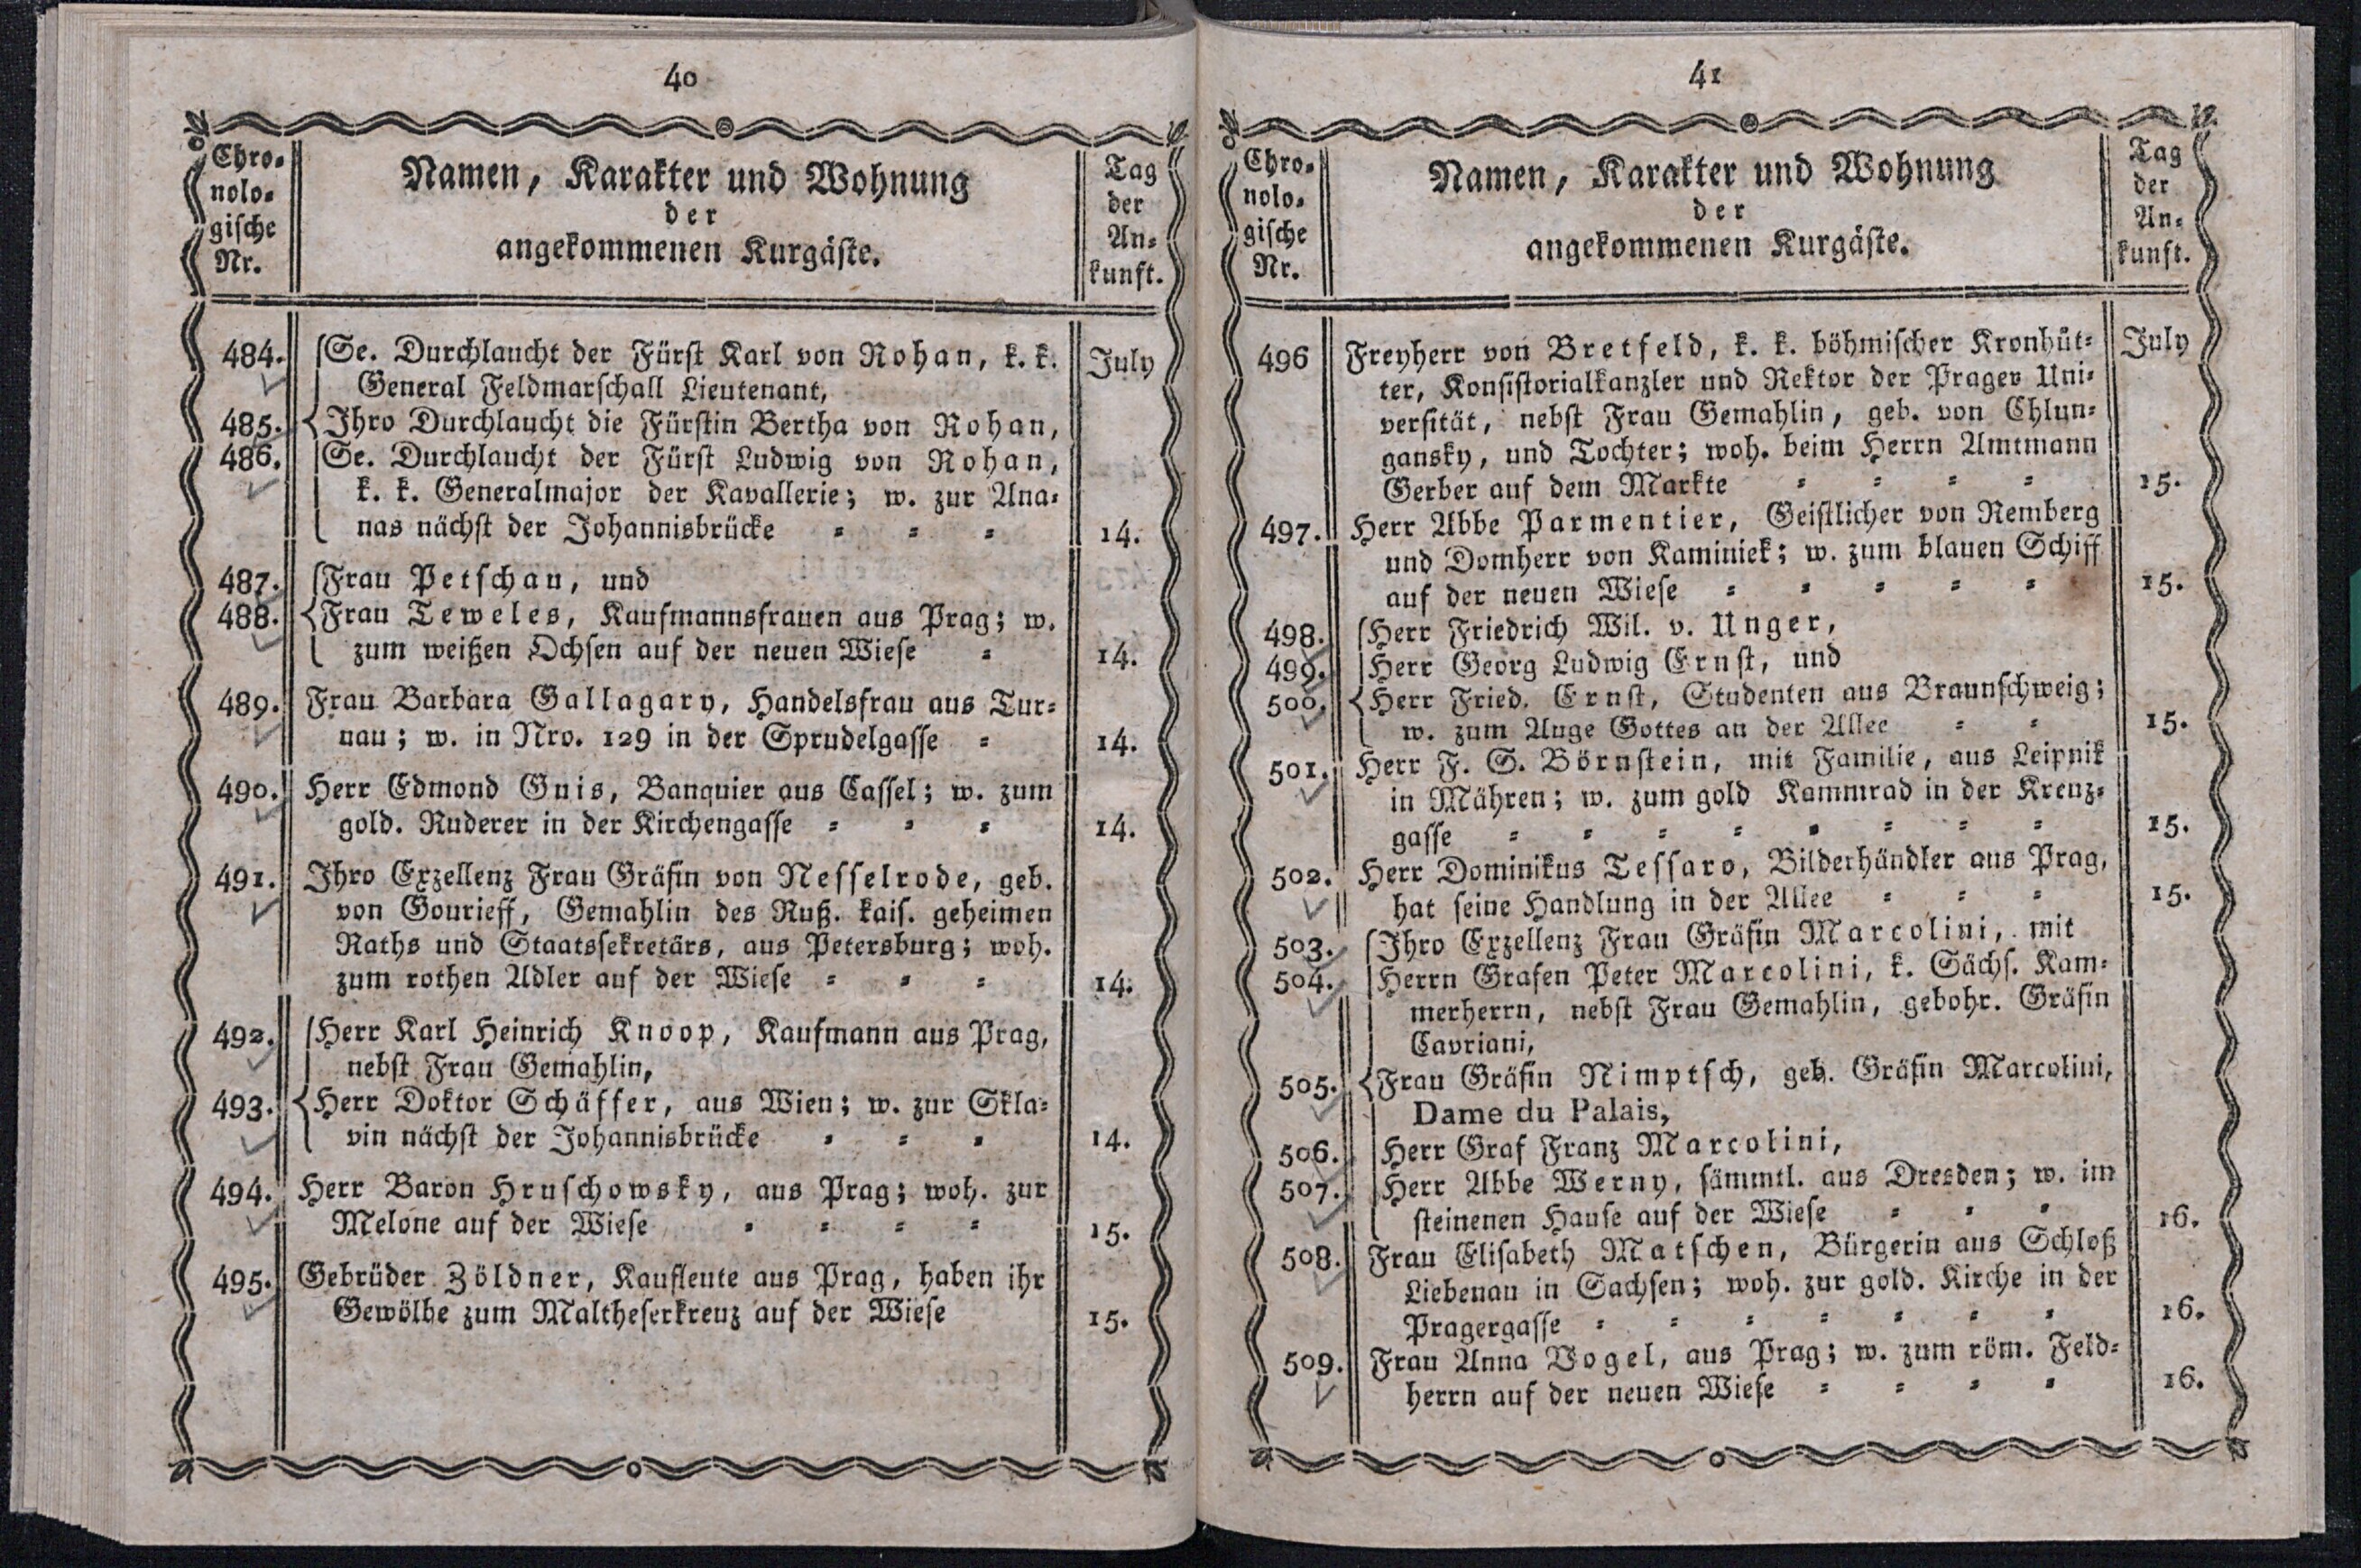 40
Chro-
nolo-
gische
Nr.
Namen, Karakter und Wohnung
der
angekommenen Kurgäste.
Tag
der
An-
kunft.
484. Se. Durchlaucht der Fürst Karl von Rohan, k. k. July
General Feldmarschall Lieutenant,
485. Ihro Durchlaucht die Fürstin Bertha von Rohan,
486. Se. Durchlaucht der Fürst Ludwig von Rohan,
k. k. Generalmajor der Kavallerie; w. zur Ana-
nas nächst der Johannisbrücke - - - 14.
487. Frau Petschau, und
488. Frau Teweles, Kaufmannsfrauen aus Prag; w.
zum weißen Ochsen auf der neuen Wiese - 14.
489. Frau Barbara Gallagary, Handelsfrau aus Tur-
nau; w. in Nro. 129 in der Sprudelgasse - 14.
490. Herr Edmond Guis, Banquier aus Cassel; w. zum
gold. Ruderer in der Kirchengasse - - - 14.
491. Ihro Exzellenz Frau Gräfin von Nesselrode, geb.
von Gourieff, Gemahlin des Ruß. kais. geheimen
Raths und Staatssekretärs, aus Petersburg; woh.
zum rothen Adler auf der Wiese - - - 14.
492. Herr Karl Heinrich Knoop, Kaufmann aus Prag,
nebst Frau Gemahlin,
493. Herr Doktor Schäffer, aus Wien; w. zur Skla-
vin nächst der Johannisbrücke - - - 14.
494. Herr Baron Hruschowsky, aus Prag; woh. zur
Melone auf der Wiese - - - - 15.
495. Gebrüder Zöldner, Kaufleute aus Prag, haben ihr
Gewölbe zum Maltheserkreuz auf der Wiese 15.
41
Chro-
nolo-
gische
Nr.
Namen, Karakter und Wohnung
der
angekommenen Kurgäste.
Tag
der
An-
kunft.
496 Freyherr von Bretfeld, k. k. böhmischer Kronhüt- July
ter, Konsistorialkanzler und Rektor der Prager Uni-
versität, nebst Frau Gemahlin, geb. von Chlun-
gansky, und Tochter; woh. beim Herrn Amtmann
Gerber auf dem Markte - - - - 15.
497. Herr Abbe Parmentier, Geistlicher von Remberg
und Domherr von Kaminiek; w. zum blauen Schiff
auf der neuen Wiese - - - - - 15.
498. Herr Friedrich Wil. v. Unger,
499. Herr Georg Ludwig Ernst, und
500. Herr Fried. Ernst, Studenten aus Braunschweig;
w. zum Auge Gottes an der Allee - - 15.
501. Herr F. S. Börnstein, mit Familie, aus Leipnik
in Mähren; w. zum gold Kammrad in der Kreuz-
gasse - - - - - - - - 15.
502. Herr Dominikus Tessaro, Bilderhändler aus Prag,
hat seine Handlung in der Allee - - - 15.
503. Ihro Exzellenz Frau Gräfin Marcolini, mit
504. Herrn Grafen Peter Marcolini, k. Sächs. Kam-
merherrn, nebst Frau Gemahlin, gebohr. Gräfin
Cavriani,
505. Frau Gräfin Nimptsch, geb. Gräfin Marcolini,
Dame du Palais,
506. Herr Graf Franz Marcolini,
507. Herr Abbe Werny, sämmtl. aus Dresden; w. im
steinenen Hause auf der Wiese - - - 16.
508. Frau Elisabeth Matschen, Bürgerin aus Schloß
Liebenau in Sachsen; woh. zur gold. Kirche in der
Pragergasse - - - - - - - 16.
509. Frau Anna Vogel, aus Prag; w. zum röm. Feld-
herrn auf der neuen Wiese - - - - 16.